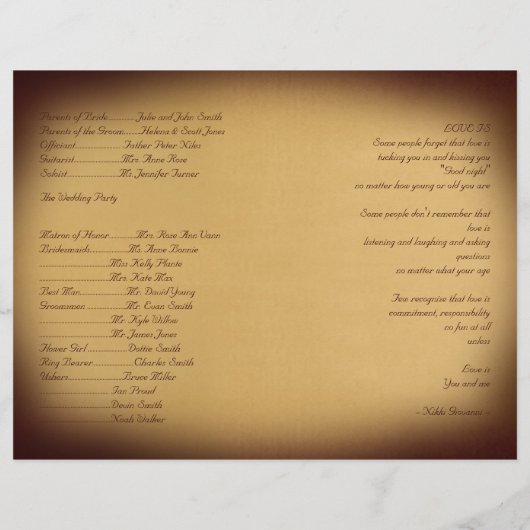 Parents of Bride............Julie and John Smith
Parents of the Groom.......Helena & Scott Jones
Officiant.....................Father Peter Niles
Guitarist....................Mrs. Anne Rose
Soloist.....................Ms. Jennifer Turner
The Wedding Party
Matron of Honor...........Mrs. Rose Ann Vann
Bridesmaids.................Ms. Anne Bonnie
..............................Miss Kelly Plante
..............................Mrs. Kate Max
Best Man....................Mr. David Young
Groomsmen .................Mr. Evan Smith
...............................Mr. Kyle Willow
...............................Mr. James Jones
Flower Girl .................Dottie Smith
Ring Bearer..................Charles Smith
Ushers........................Bruce Miller
...............................Ian Proud
...............................Devin Smith
...............................Noah Walker
LOVE IS
Some people forget that love is
tucking you in and kissing you
"Good night"
no matter how young or old you are
Some people don't remember that
love is
listening and laughing and asking
questions
no matter what your age
Few recognise that love is
commitment, responsibility
no fun at all
unless
Love is
You and me
~ Nikki Giovanni ~